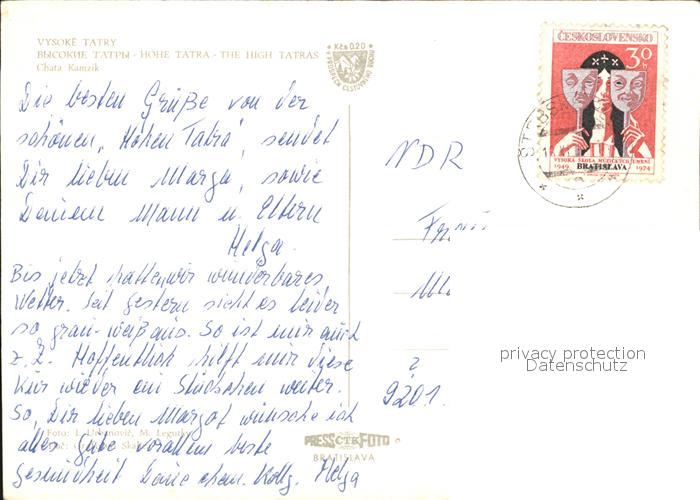 VYSOKÉ TATRY
ВЫСОКИЕ ТАТРЫ - HOHE TATRA - THE HIGH TATRAS
Chata Kamzík
Kčs 0,20
Die besten Grüße von der
schönen „Hohen Tatra“, sendet
Dir lieben Marga, sowie
Deinem Mann u. Eltern
Helga.
Bis jetzt hatten wir wunderbares
Wetter. Seit gestern sieht es leider
so grau-weiß aus. So ist mir auch
z. Z. Hoffentlich hilft mir diese
Kur wieder ein Stückchen weiter.
So, Dir lieben Margot wünsche ich
alles Gute vor allem beste
Gesundheit Deine ehem. Kollg. Helga
Foto: I. Urbanovič, M. Legutky
PRESSFOTO
BRATISLAVA
ČESKOSLOVENSKO
30 h
VYSOKÁ ŠKOLA MÚZICKÝCH UMENÍ
1949 BRATISLAVA 1974
NDR
9201
privacy protection
Datenschutz